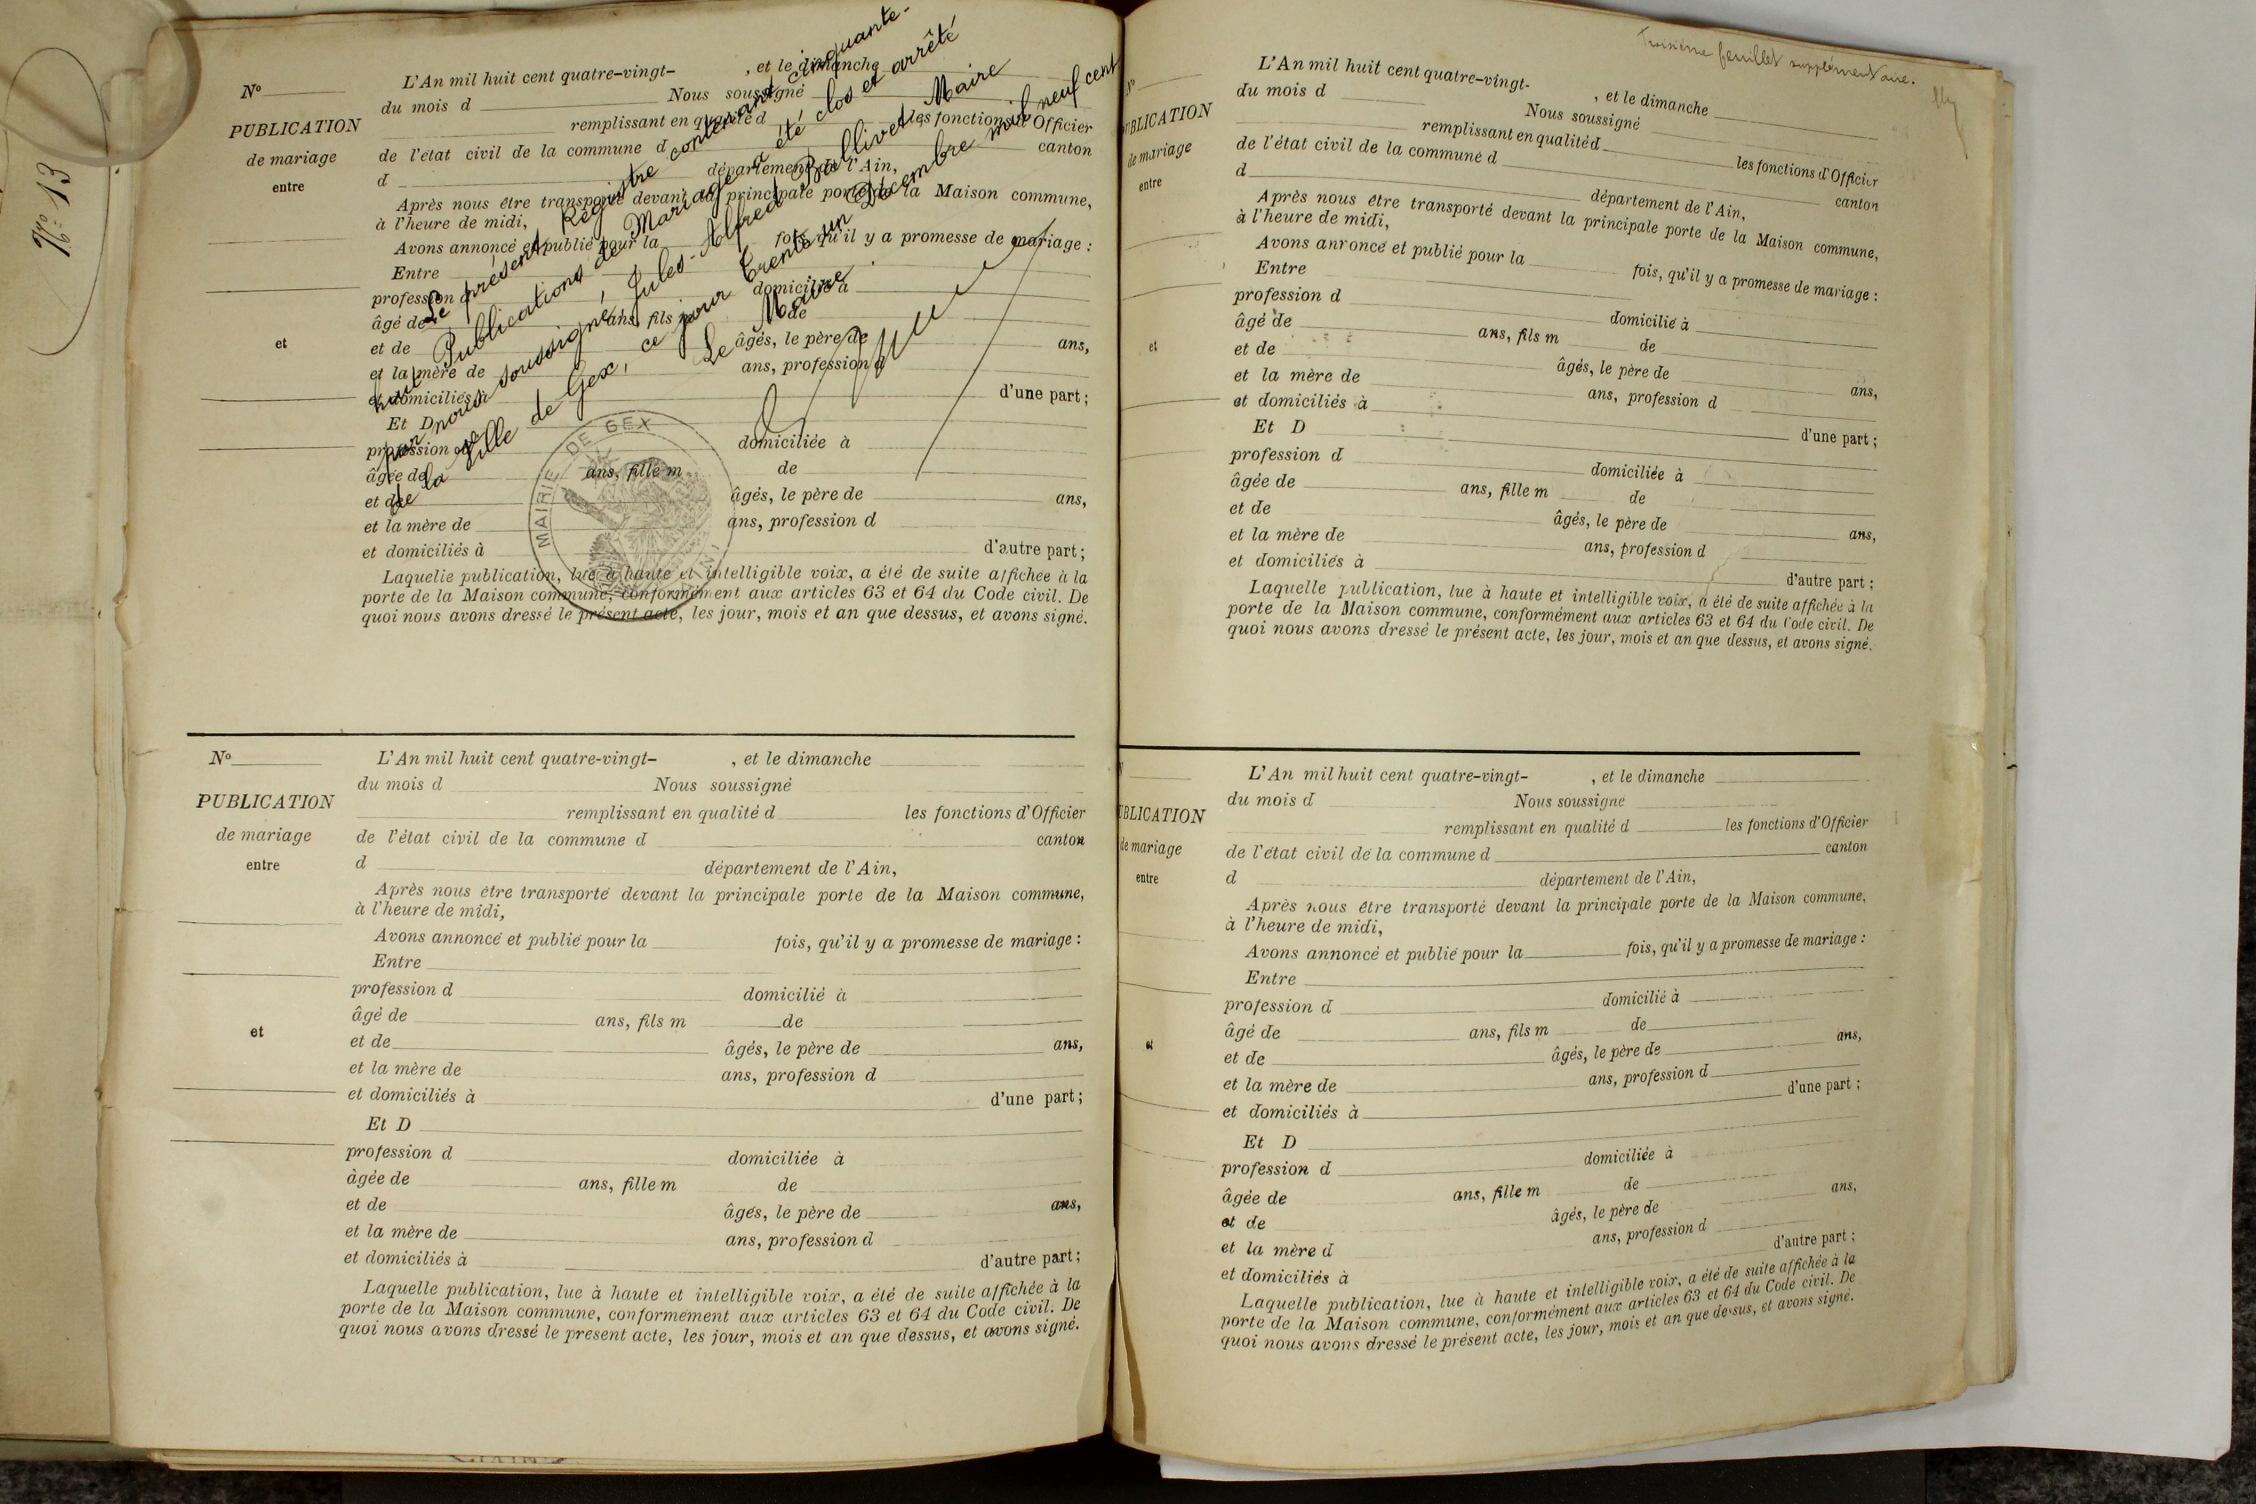 No 13
No
PUBLICATION
de mariage
entre
et
L'An mil huit cent quatre-vingt- , et le dimanche
du mois d Nous soussigné
remplissant en qualité d les fonctions d'Officier
de l'état civil de la commune d canton
d département de l'Ain,
Après nous être transporté devant la principale porte de la Maison commune,
à l'heure de midi,
Avons annoncé et publié pour la fois, qu'il y a promesse de mariage :
Entre
profession d domicilié à
âgé de ans, fils m de
et de âgés, le père de ans,
et la mère de ans, profession d
et domiciliés à d'une part ;
Et D
profession d domiciliée à
âgée de ans, fille m de
et de âgés, le père de ans,
et la mère de ans, profession d
et domiciliés à d'autre part ;
Laquelle publication, lue à haute et intelligible voix, a été de suite affichée à la
porte de la Maison commune, conformément aux articles 63 et 64 du Code civil. De
quoi nous avons dressé le présent acte, les jour, mois et an que dessus, et avons signé.
Le présent Registre contenant cinquante-
huit Publications de Mariage a été clos et arrêté
par nous soussigné, Jules-Alfred Baillivet, Maire
de la Ville de Gex, ce jour trente-un Décembre mil neuf cent
Le Maire
MAIRIE DE GEX
(AIN)
No
PUBLICATION
de mariage
entre
et
L'An mil huit cent quatre-vingt- , et le dimanche
du mois d Nous soussigné
remplissant en qualité d les fonctions d'Officier
de l'état civil de la commune d canton
d département de l'Ain,
Après nous être transporté devant la principale porte de la Maison commune,
à l'heure de midi,
Avons annoncé et publié pour la fois, qu'il y a promesse de mariage :
Entre
profession d domicilié à
âgé de ans, fils m de
et de âgés, le père de ans,
et la mère de ans, profession d
et domiciliés à d'une part ;
Et D
profession d domiciliée à
âgée de ans, fille m de
et de âgés, le père de ans,
et la mère de ans, profession d
et domiciliés à d'autre part ;
Laquelle publication, lue à haute et intelligible voix, a été de suite affichée à la
porte de la Maison commune, conformément aux articles 63 et 64 du Code civil. De
quoi nous avons dressé le présent acte, les jour, mois et an que dessus, et avons signé.
Troisième feuillet supplémentaire.
No
UBLICATION
de mariage
entre
et
L'An mil huit cent quatre-vingt- , et le dimanche
du mois d Nous soussigné
remplissant en qualité d les fonctions d'Officier
de l'état civil de la commune d canton
d département de l'Ain,
Après nous être transporté devant la principale porte de la Maison commune,
à l'heure de midi,
Avons annoncé et publié pour la fois, qu'il y a promesse de mariage :
Entre
profession d domicilié à
âgé de ans, fils m de
et de âgés, le père de ans,
et la mère de ans, profession d
et domiciliés à d'une part ;
Et D
profession d domiciliée à
âgée de ans, fille m de
et de âgés, le père de ans,
et la mère de ans, profession d
et domiciliés à d'autre part ;
Laquelle publication, lue à haute et intelligible voix, a été de suite affichée à la
porte de la Maison commune, conformément aux articles 63 et 64 du Code civil. De
quoi nous avons dressé le présent acte, les jour, mois et an que dessus, et avons signé.
UBLICATION
de mariage
entre
et
L'An mil huit cent quatre-vingt- , et le dimanche
du mois d Nous soussigné
remplissant en qualité d les fonctions d'Officier
de l'état civil de la commune d canton
d département de l'Ain,
Après nous être transporté devant la principale porte de la Maison commune,
à l'heure de midi,
Avons annoncé et publié pour la fois, qu'il y a promesse de mariage :
Entre
profession d domicilié à
âgé de ans, fils m de
et de âgés, le père de ans,
et la mère de ans, profession d
et domiciliés à d'une part ;
Et D
profession d domiciliée à
âgée de ans, fille m de
et de âgés, le père de ans,
et la mère d ans, profession d
et domiciliés à d'autre part ;
Laquelle publication, lue à haute et intelligible voix, a été de suite affichée à la
porte de la Maison commune, conformément aux articles 63 et 64 du Code civil. De
quoi nous avons dressé le présent acte, les jour, mois et an que dessus, et avons signé.